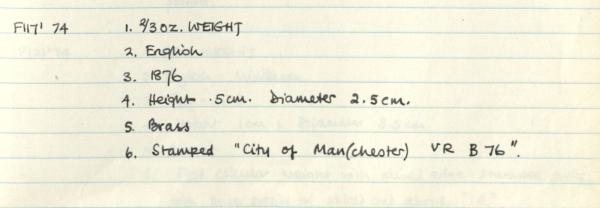 F117' 74 1. 2/3 oz. WEIGHT
2. English
3. 1876
4. Height .5cm. Diameter 2.5cm.
5. Brass
6. Stamped "City of Man(chester) VR B 76".